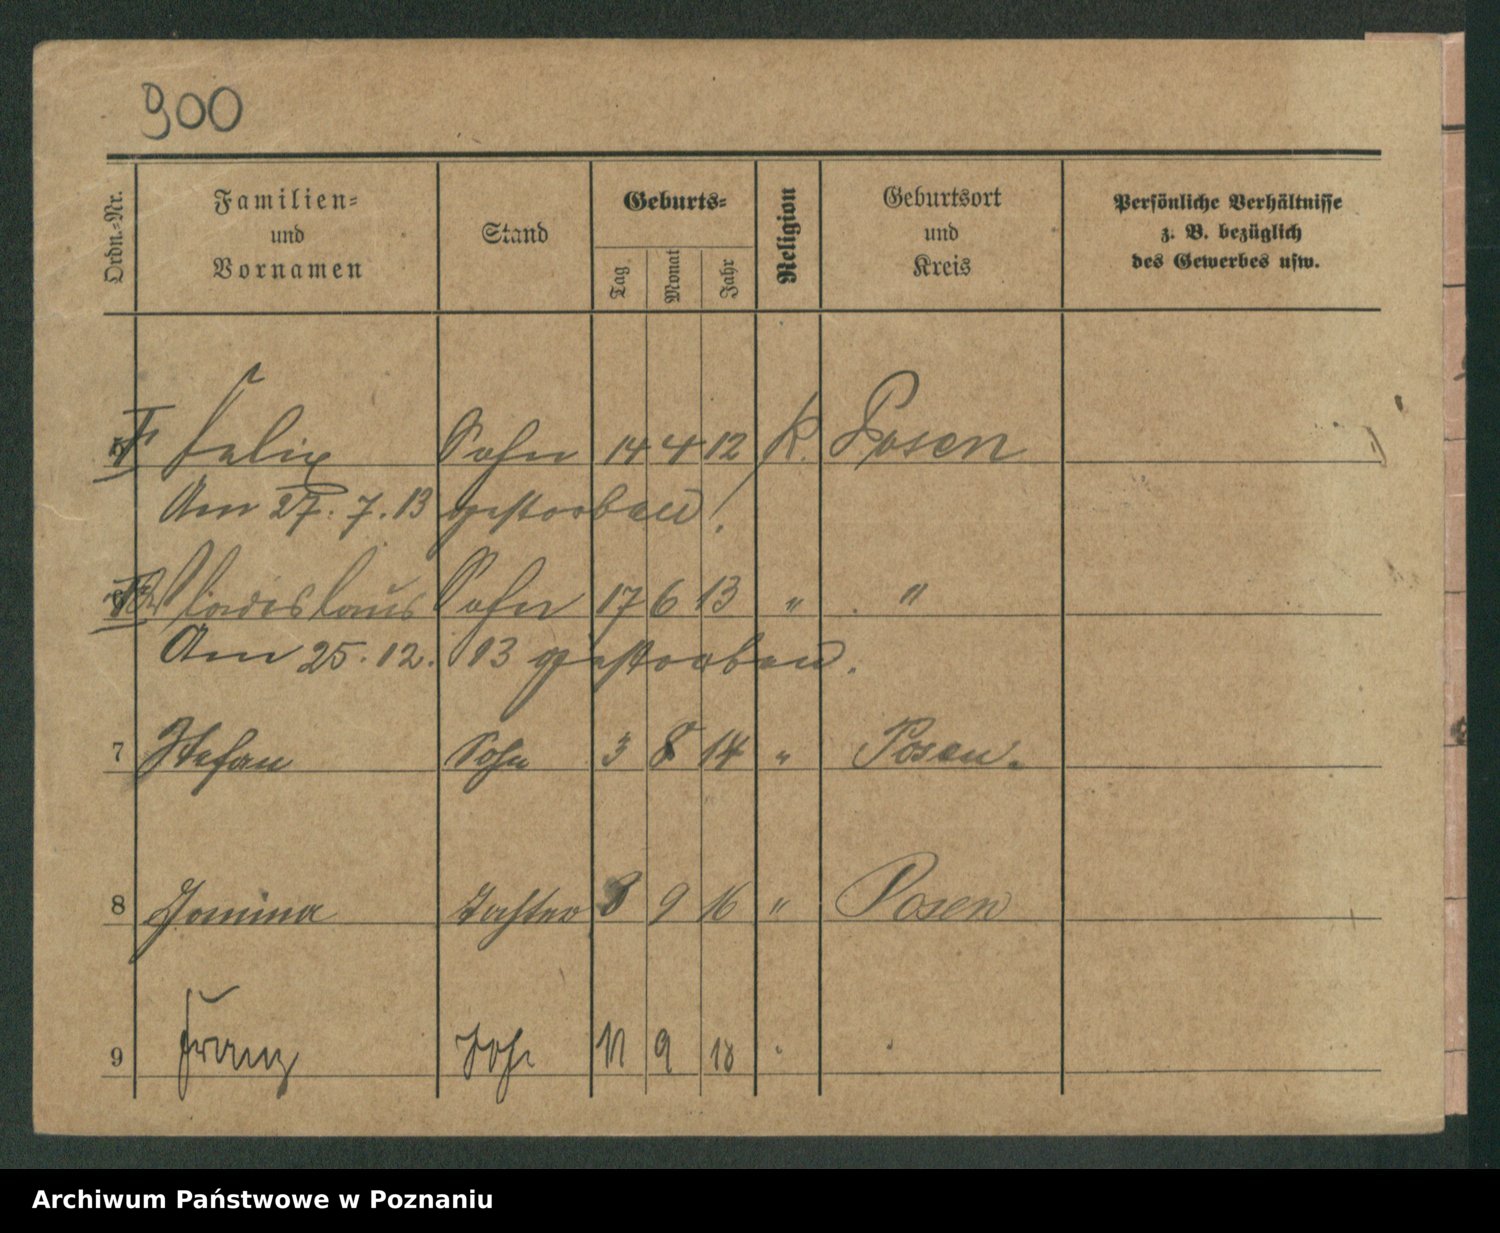 900
Ordn.-Nr.
Familien- und Vornamen
Stand
Geburts-
Tag
Monat
Jahr
Religion
Geburtsort und Kreis
Persönliche Verhältnisse z. B. bezüglich des Gewerbes usw.
5 Felix Sohn 14 4 12 K. Posen
Am 27. 7. 13 gestorben!
6 Wladislaus Sohn 17 6 13 " "
Am 25. 12. 13 gestorben.
7 Stefan Sohn 3 8 14 " Posen.
8 Tochter 8 9 16 " Posen
9 Franz Sohn 11 9 18
Archiwum Państwowe w Poznaniu